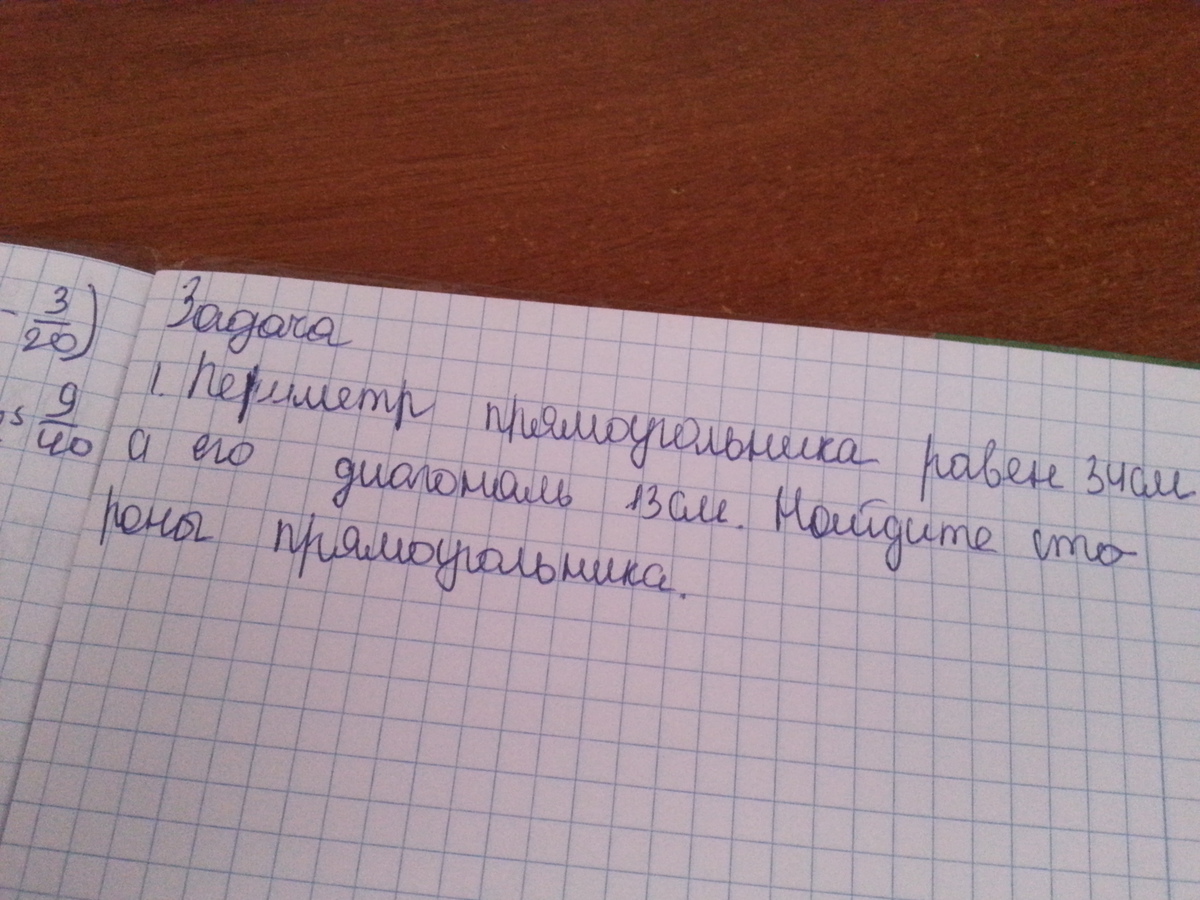 - 3/20)
Задача
1. Периметр прямоугольника равен 34см
9/40
а его диагональ 13 см. Найдите сто-
роны прямоугольника.